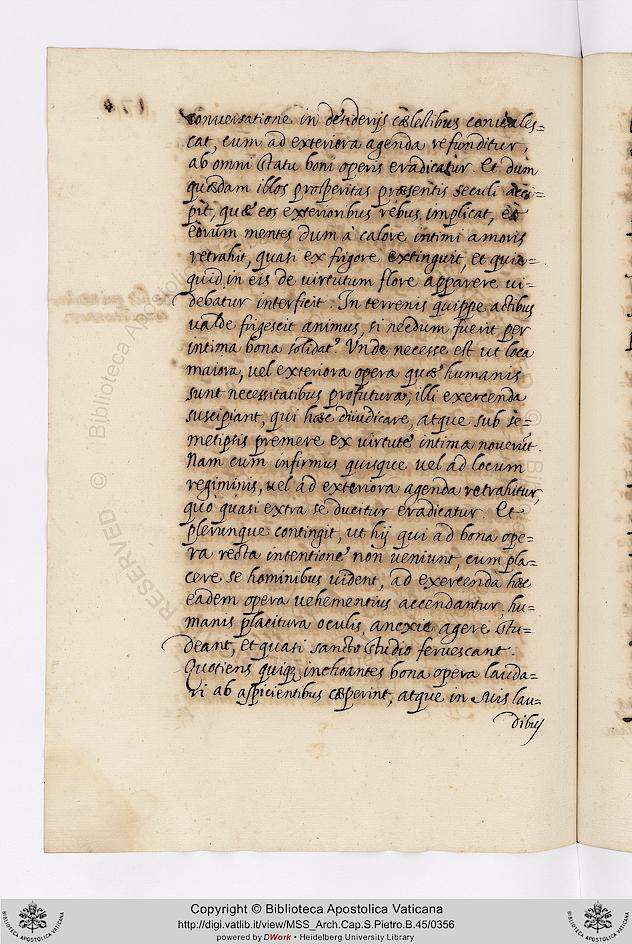 conuersatione in desiderijs cælestibus conuales=
cat, cum ad exteriora agenda refunditur,
ab omni statu boni operis eradicatur. Et dum
quædam illos prosperitas præsentis seculi acci=
pit, quæ eos exterioribus rebus implicat, et
eorum mentes dum à calore intimi amoris
retrahit, quasi ex frigore extinguit, et quic=
quid in eis de virtutum flore apparere vi=
debatur interficit. In terrenis quippe actibus
ualde frigescit animus, si necdum fuerit per
intima bona solidatꝰ. Vnde necesse est ut loca
maiora, uel exteriora opera quæ humanis
sunt necessitatibus profutura, illi exercenda
suscipiant, qui hæc diiudicare, atque sub se=
metipsis premere ex virtute intima nouerūt.
Nam cum infirmus quisque uel ad locum
regiminis, uel ad exteriora agenda retrahitur,
quo quasi extra se ducitur eradicatur. Et
plerunque contingit, ut hij qui ad bona ope=
ra recta intentione non veniunt, cum pla=
cere se hominibus uident, ad exercenda hæc
eadem opera uehementius accendantur, hu=
manis placitura oculis, anxie agere stu=
deant, et quasi sancto studio feruescant.
Quotiens quippe inchoantes bona opera lauda=
ri ab aspicientibus cæperint, atque in suis lau=
dibus
RESERVED © Biblioteca Apostolica
Copyright © Biblioteca Apostolica Vaticana
http://digi.vatlib.it/view/MSS_Arch.Cap.S.Pietro.B.45/0356
powered by DWork • Heidelberg University Library
BIBLIOTECA APOSTOLICA VATICANA
BIBLIOTECA APOSTOLICA VATICANA